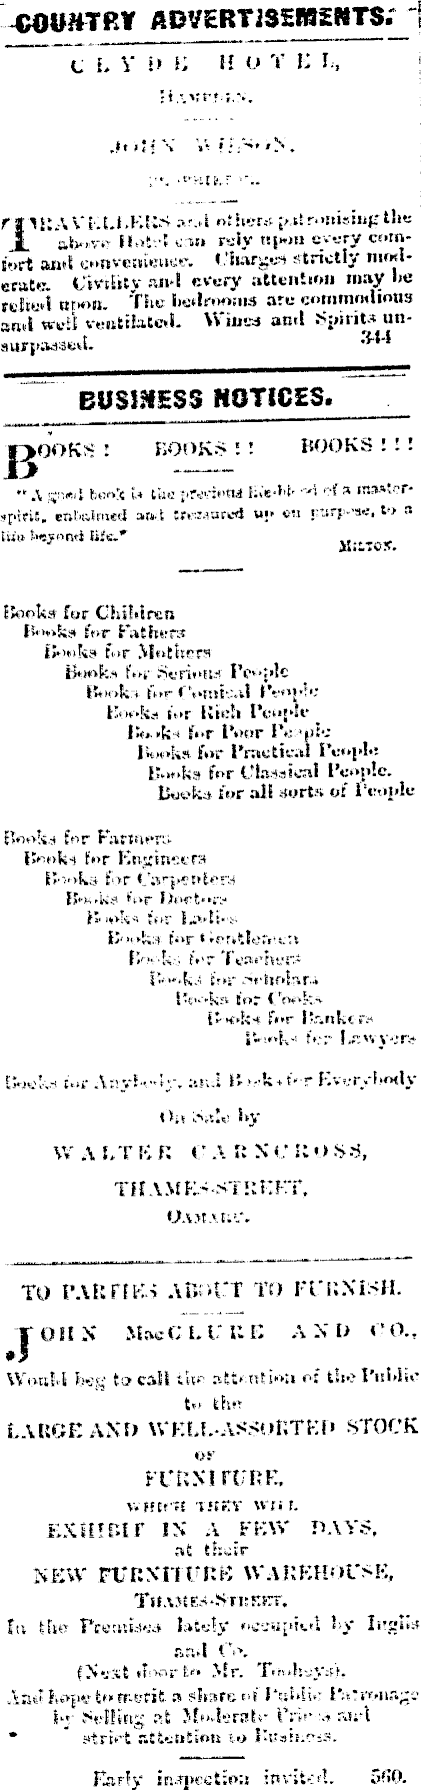 COUNTRY ADVERTISEMENTS.
CLYDE HOTEL,
HAMPDEN.
JOHN WILSON,
PROPRIETOR.
TRAVELLERS and others patronising the
above Hotel can rely upon every com-
fort and convenience. Charges strictly mod-
erate. Civility and every attention may be
relied upon. The bedrooms are commodious
and well ventilated. Wines and Spirits un-
surpassed. 344
BUSINESS NOTICES.
BOOKS! BOOKS!! BOOKS!!!
"A good book is the precious life-blood of a master-
spirit, embalmed and treasured up on purpose, to a
life beyond life."
MILTON.
Books for Children
Books for Fathers
Books for Mothers
Books for Serious People
Books for Comical People
Books for Rich People
Books for Poor People
Books for Practical People
Books for Classical People.
Books for all sorts of People
Books for Farmers
Books for Engineers
Books for Carpenters
Books for Doctors
Books for Ladies
Books for Gentlemen
Books for Teachers
Books for Scholars
Books for Cooks
Books for Bankers
Books for Lawyers
Books for Anybody, and Books for Everybody
On Sale by
WALTER CARNCROSS,
THAMES-STREET,
OAMARU.
TO PARTIES ABOUT TO FURNISH.
JOHN MacCLURE AND CO.,
Would beg to call the attention of the Public
to the
LARGE AND WELL-ASSORTED STOCK
OF
FURNITURE,
WHICH THEY WILL
EXHIBIT IN A FEW DAYS,
at their
NEW FURNITURE WAREHOUSE,
THAMES-STREET,
In the Premises lately occupied by Inglis
and Co.
(Next door to Mr. Tooheys).
And hope to merit a share of Public Patronage
by Selling at Moderate Prices and
strict attention to Business.
Early inspection invited. 560.